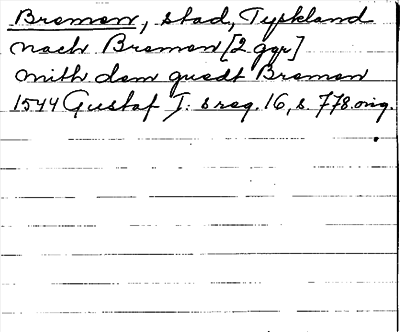 Bremen, stad, Tyskland
nach Bremen [2 ggr]
mith dem guedt Bremen
1544 Gustaf I:s reg. 16, s. 778. orig.